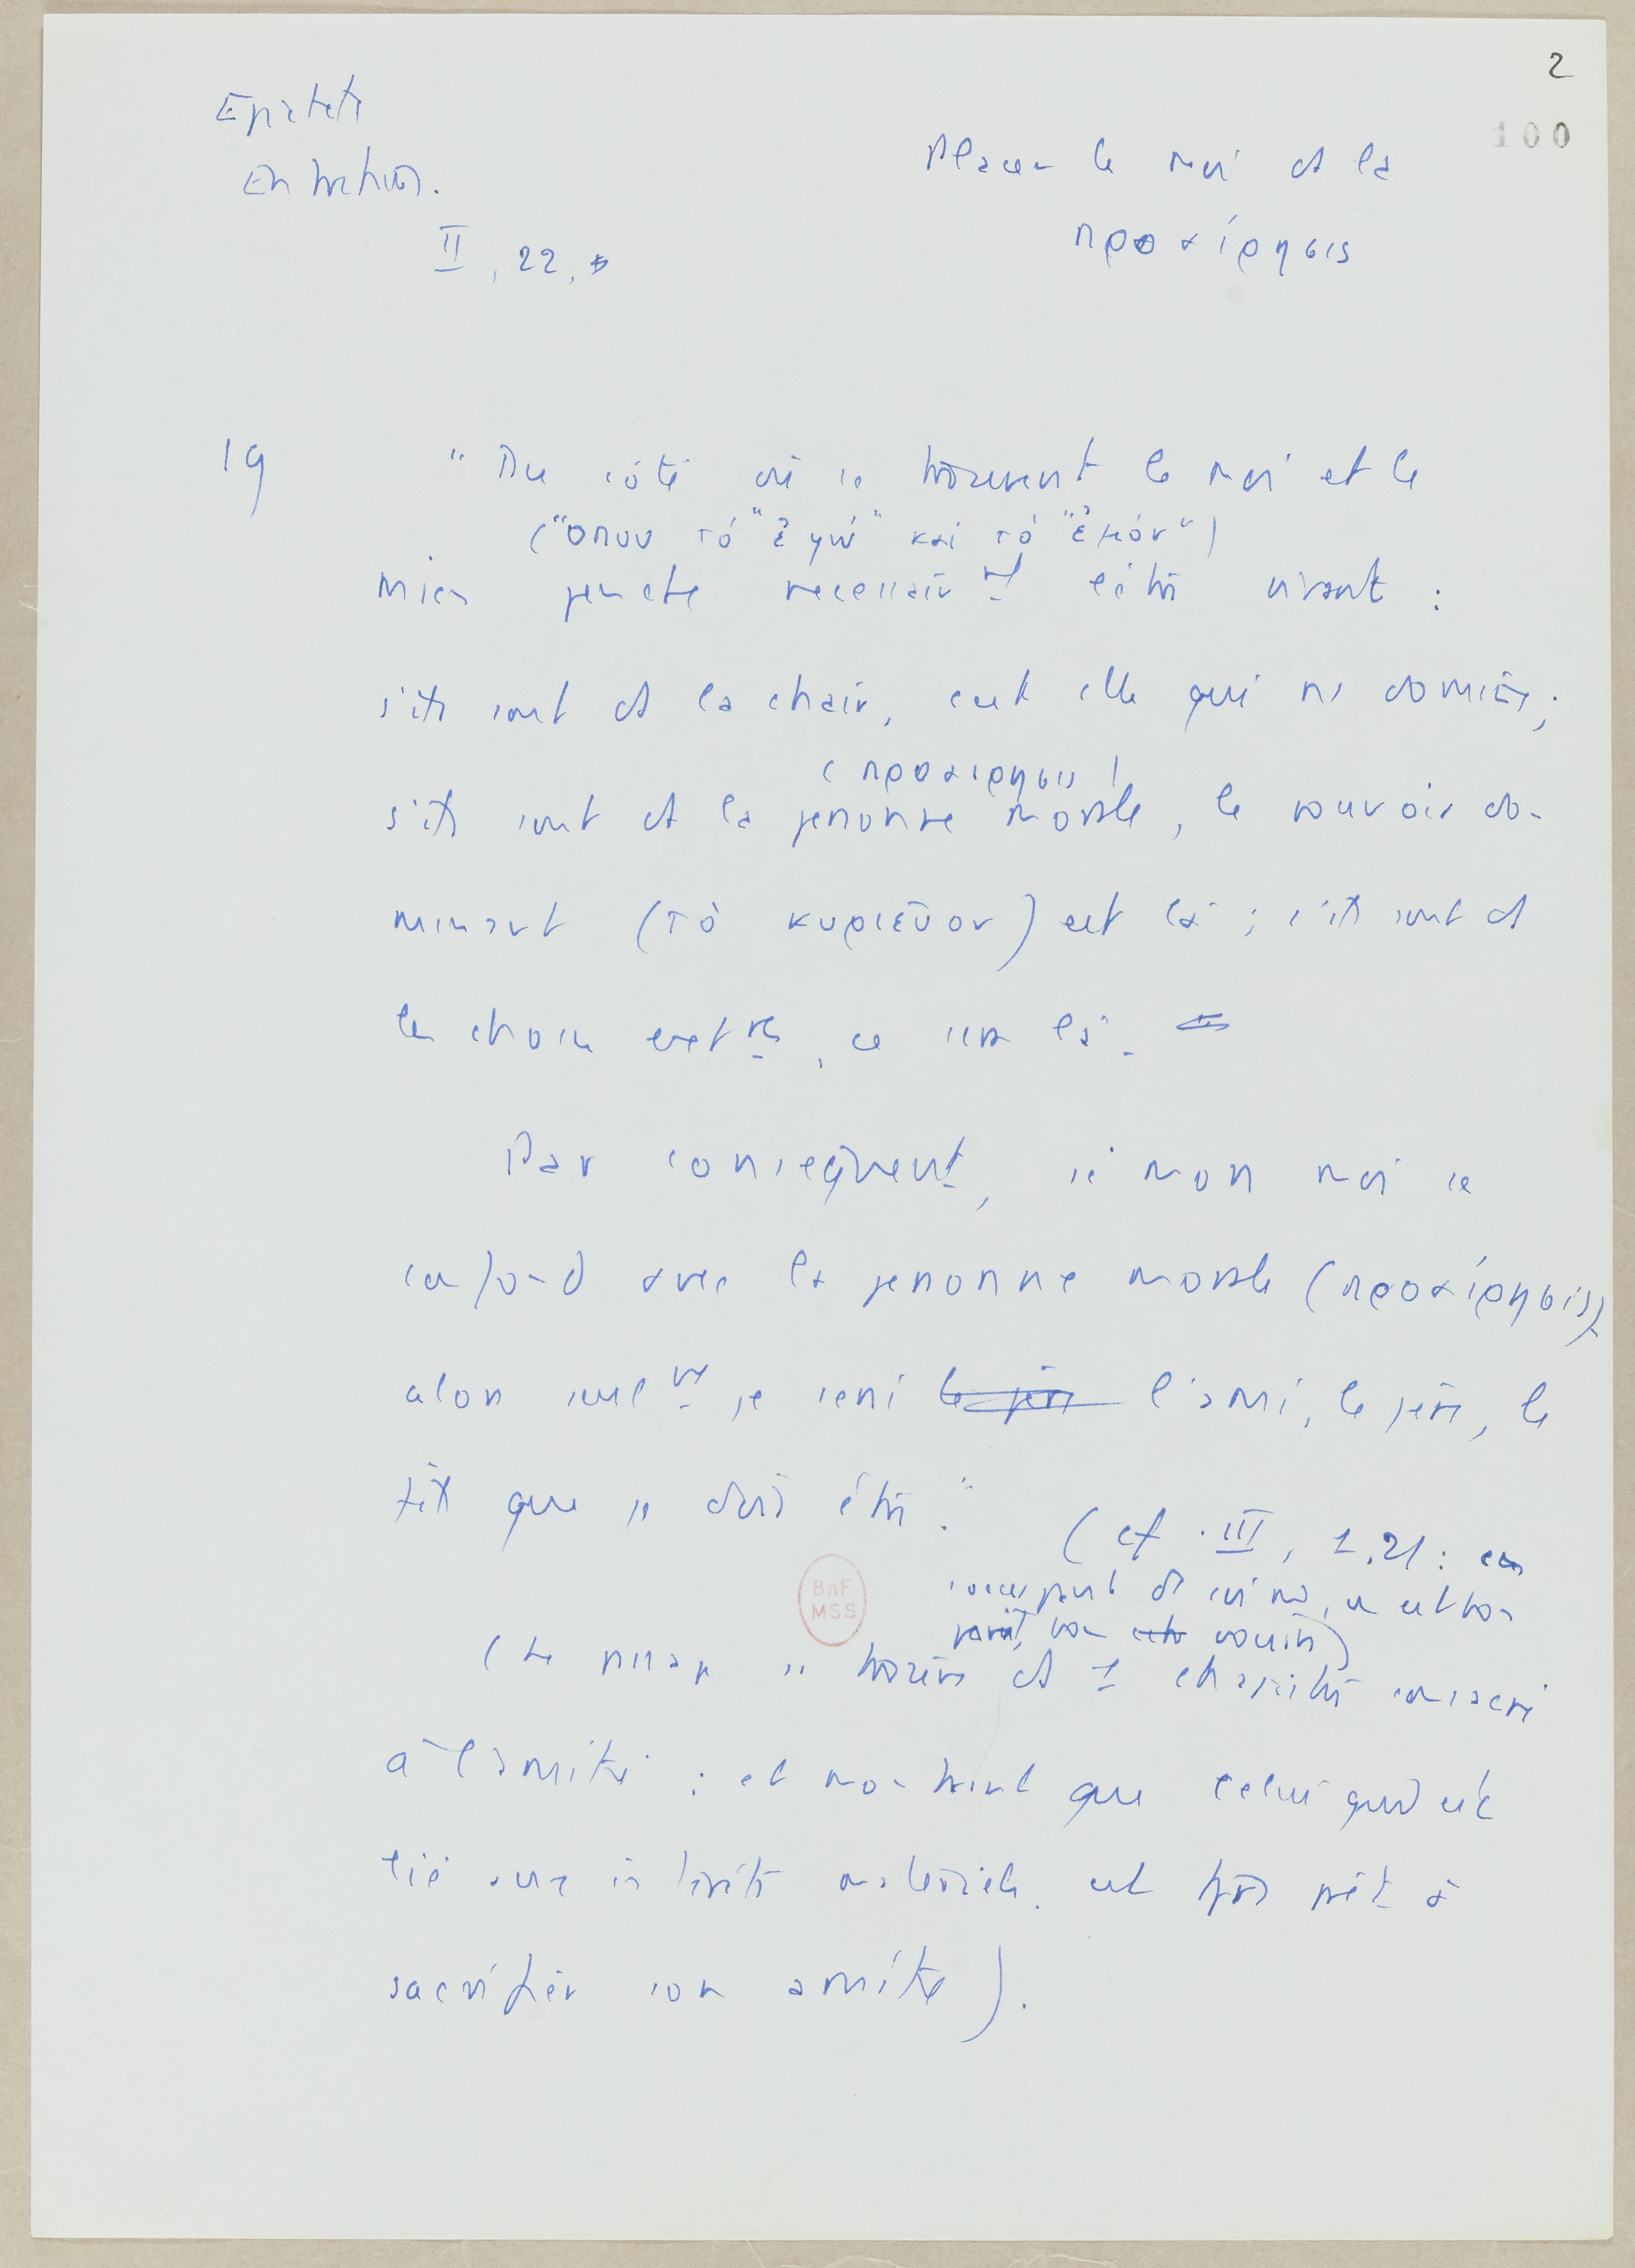 2
100
Epictete
Entretiens.
II, 22,
Placer le moi ds la
προαίρησις
19 "Du côté où se trouvent le moi et le
("ὅπου τό "ἐγώ" καί τό "ἐμόν")
mien penche necessairt l'être vivant :
s'ils sont ds la chair, c'est elle qui ns domine ;
(προαιρησις)
s'ils sont ds la personne morale, le pouvoir do-
minant (τὸ κυριεῦον) est là ; s'ils sont ds
les choses extres, ce sera là.
Par conséquent, si mon moi se
confond avec la personne morale (προαίρησις)
alors seulnt je serai le père l'ami, le père, le
fils que je dois être." (cf. III, 1, 21 :
(Le passage se trouve ds 1 chapitre consacré
à l'amitié : et montrant que celui qui est
lié aux intérêts matériels est tjrs prêt à
sacrifier son amitié).
BnF
MSS